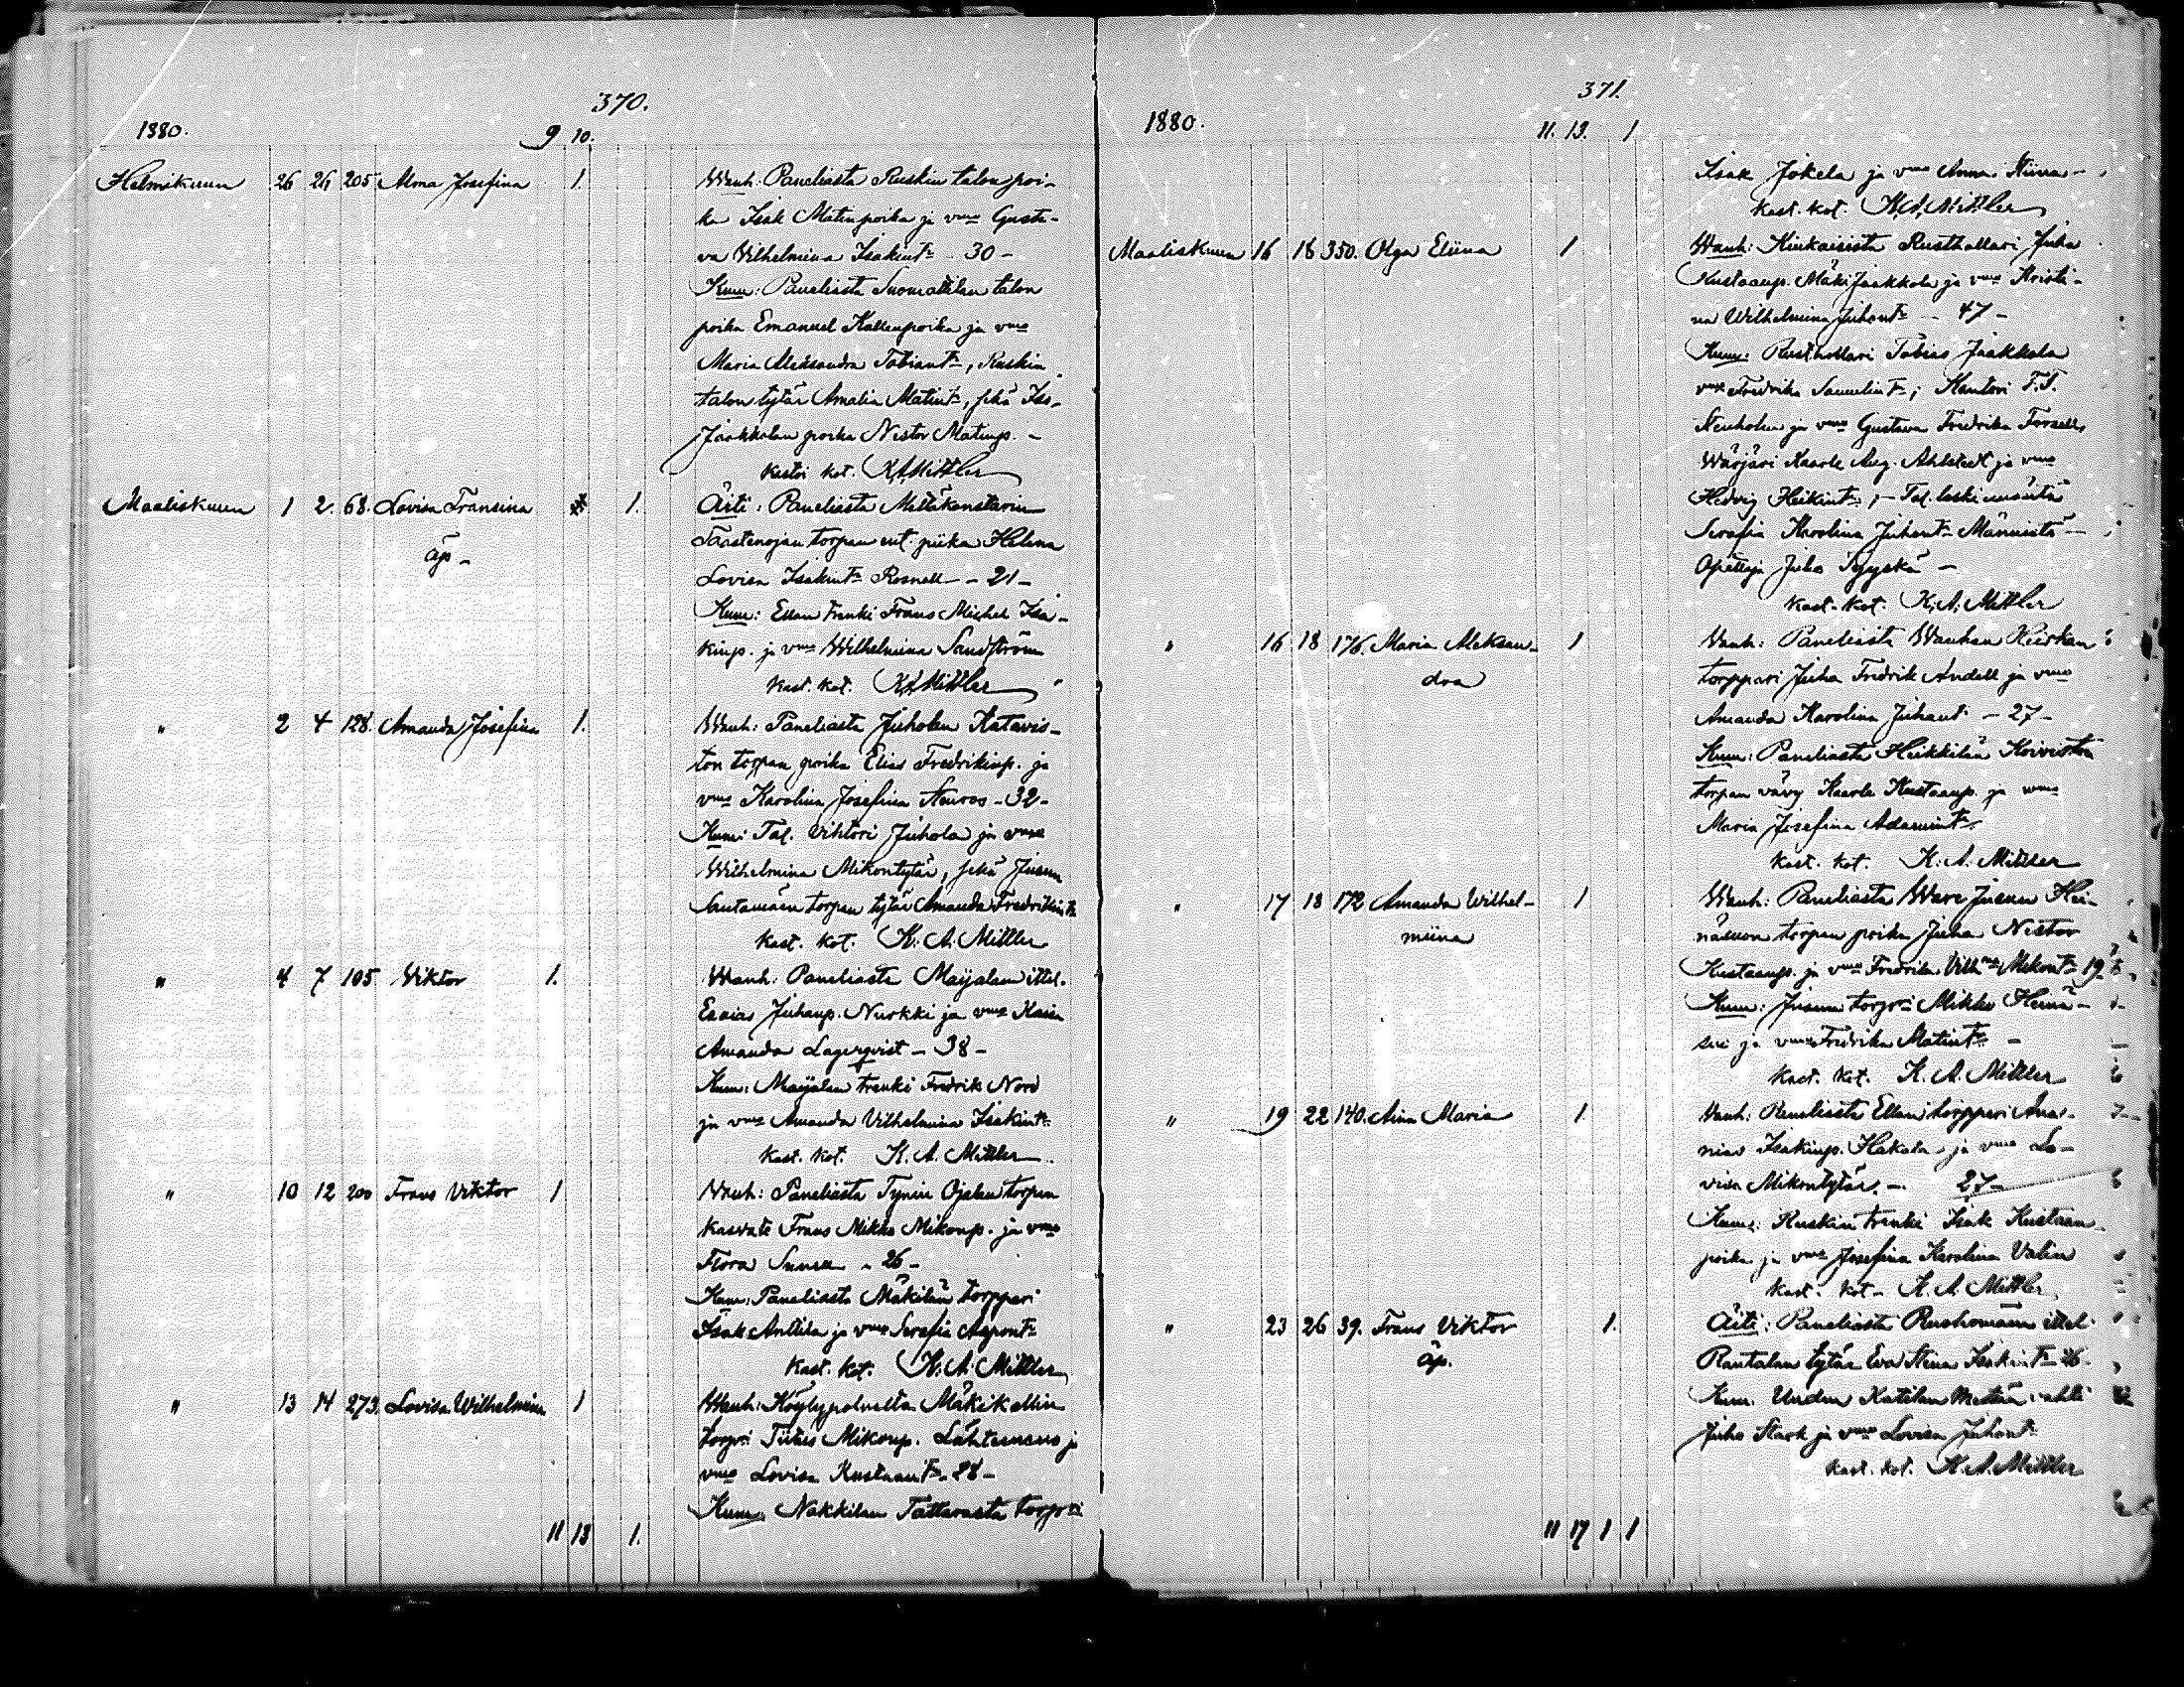 370.
1880.
9 10.
Helmikuun 26 26 205 Alma Josefina 1. Wanh. Paneliasta Ruskin talon poi-
ka Isak Matinpoika ja vmo Gusta-
va Vilhelmina Isakint. - 30 -
Kum: Paneliasta Suomalilan talon
poika Emanuel Kallenpoika ja vmo
Maria Aleksandra Tobiant., Ruskin
talon tytär Amalia Matint., sekä Iso-
Jaakkolan poika Nestor Matinp. -
Kastoi kot. K.A. Mittler
Maaliskuun 1 2. 68. Lovisa Fransina 1. Äiti: Paneliasta Mettäkonstarin
äp - Taastenojan torpan ent. piika Helena
Lovisa Isakint. Rosnell - 21 -
Kum: Ellan trenki Frans Michel Isa-
kinp. ja vmo Wilhelmina Sandström
Kast. kot. K.A. Mittler
" 2 4 128. Amanda Josefina 1. Wanh: Paneliasta Juholan Katavis-
ton torpan poika Elias Fredrikinp. ja
vmo Karolina Josefina Stenroos - 32 -
Kum: Tal. Vihtori Juhola ja vmo
Wilhelmina Mikontytär, sekä Jusun
Santamäen torpan tytär Amanda Fredrikint.
Kast. kot. K. A. Mittler
" 4 7 105 Wiktor 1. Wanh: Paneliasta Maijalan ittel.
Esaias Juhanp. Nurkki ja vmo Kaisa
Amanda Lagerqvist - 38 -
Kum: Maijalan trenki Fredrik Nord
ja vmo Amanda Vilhelmina Isakint.
Kast. kot. K. A. Mittler
" 10 12 200 Frans Viktor 1 Vanh: Paneliasta Tynin Ojalan torpan
kasvate Frans Mikko Mikonp. ja vmo
Flora - 26 -
Kum: Paneliasta Mäkilän torppari
Isak Anttila ja vmo Serafia Aapont.
Kast. kot. K. A. Mittler
" 13 14 273. Lovisa Wilhelmina 1 Wanh: Köylypolvelta Mäkikallin
torpri Mikonp. Lähteenmo ja
vmo Lovisa Kustaant. - 28 -
Kum: Nakkilan Tattarasta torpri
11 13 1.
371.
1880.
11. 13. 1
Isak Jokela ja vmo Anna Stiina -
Kast. kot. K.A. Mittler
Maaliskuun 16 18 350. Olga Eliina 1 Wanh: Kiukaisista Rusthollari Juha
Kustaanp. Mäki Jaakkola ja vmo Kristi-
na Wilhelmina Juhant. - 47 -
Kum: Rusthollari Tobias Jaakkola
vmo Fredrika Samulint.; Kantori F.F.
Stenholm ja vmo Gustava Fredrika Forsell,
Wärjäri Kaarle Aug. Ahlstedt ja vmo
Hedvig Heikint.; - Tal. leski
Serafia Karolina Juhant. Männistö -
Opettaja Juho Syyskä -
Kast. kot. K. A. Mittler
" 16 18 176. Maria Aleksan- 1 Vanh: Paneliasta Wanhan Heiskan
dra torppari Juha Fredrik Andell ja vmo
Amanda Karolina Juhant. - 27 -
Kum: Paneliasta Heikkilän Koiviston
torpan vävy Kaarle Kustaanp. ja vmo
Maria Josefina Adamint.
Kast. kot. K. A. Mittler
" 17 18 172 Amanda Wilhel- 1 Wanh: Paneliasta Ware Jusun Hei-
miina näsuon torpan poika Juha Nestor
Kustaanp. ja vmo Fredrika Vilh:na Mikont. 19
Kum: Jusun torpri Mikko Heinä-
suo ja vmo Fredrika Matint. -
Kast. kot. K. A. Mittler
" 19 22 140. Aina Maria 1. Vanh: Paneliasta Ellan torppari Ana-
nias Isakinp. Hakala ja vmo Lo-
visa Mikontytär. - 27 -
Kum: Ruskin trenki Isak Kustaan-
poika ja vmo Josefina Karolina Valin
Kast. kot. K. A. Mittler
" 23 26 39. Frans Viktor 1. Äiti: Paneliasta Ruohomäen ittel.
äp. Rantalan tytär Eva Stina Isakint. - 26 -
Kum: Uuden Katilan Mettän vahti
Juho Stark ja vmo Lovisa Juhant.
Kast. kot. K. A. Mittler
11 17 1 1